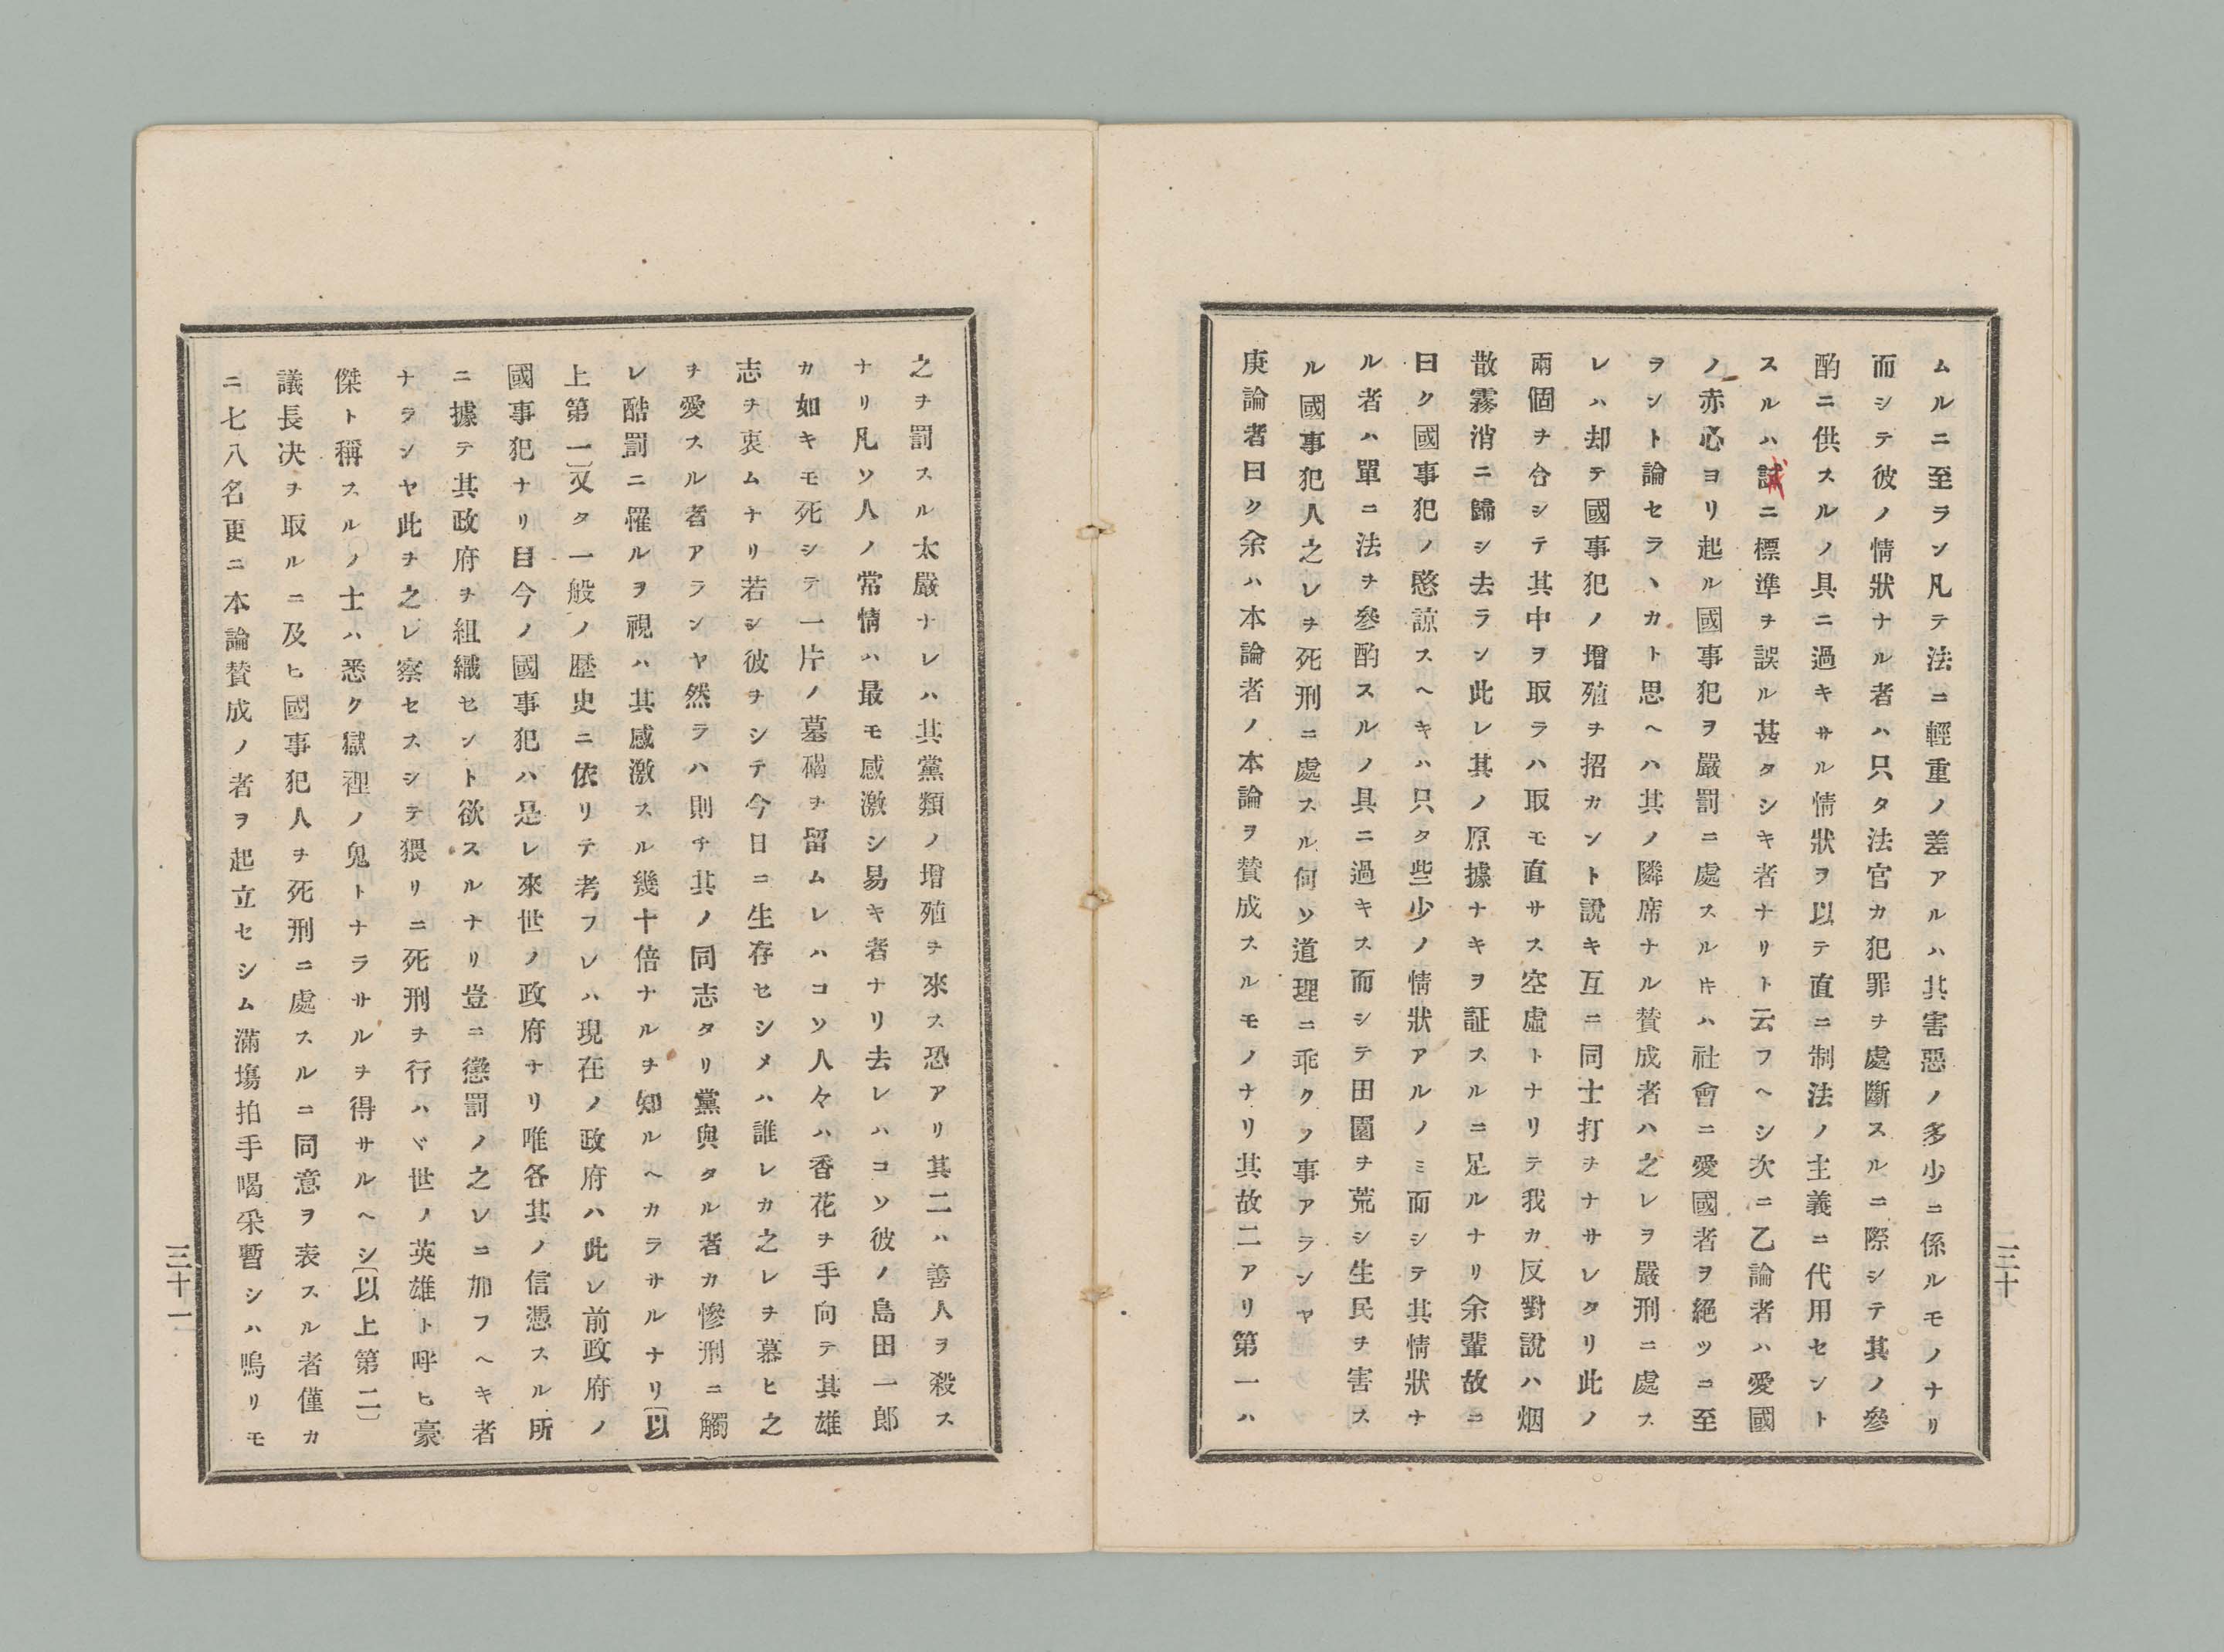 ムルニ至ラン凡テ法ニ輕重ノ差アルハ其害惡ノ多少ニ係ルモノナリ
而シテ彼ノ情狀ナル者ハ只タ法官カ犯罪ヲ處斷スルニ際シテ其ノ參
酌ニ供スルノ具ニ過キサル情狀ヲ以テ直ニ制法ノ主義ニ代用セント
スルハ誠ニ標準ヲ誤ル甚タシキ者ナリト云フヘシ次ニ乙論者ハ愛國
ノ赤心ヨリ起ル國事犯ヲ嚴罰ニ處スルキハ社會ニ愛國者ヲ絕ツニ至
ラント論セラヽカト思ヘハ其ノ隣席ナル贊成者ハ之レヲ嚴刑ニ處ス
レハ却テ國事犯ノ增殖ヲ招カント說キ互ニ同士打ヲナサレタリ此ノ
兩個ヲ合シテ其中ヲ取ラハ取モ直サス空虛トナリテ我カ反對說ハ烟
散霧消ニ歸シ去ラン此レ其ノ原據ナキヲ証スルニ足ルナリ余輩故ニ
曰ク國事犯ノ愍諒スヘキハ只タ些少ノ情狀アルノミ而シテ其情狀ナ
ル者ハ單ニ法ヲ參酌スルノ具ニ過キス而シテ田園ヲ荒シ生民ヲ害ス
ル國事犯人之レヲ死刑ニ處スル何ソ道理ニ乖クノ事アランヤ
庚論者曰ク余ハ本論者ノ本論ヲ贊成スルモノナリ其故二アリ第一ハ
三十
之ヲ罰スル太嚴ナレハ其黨類ノ增殖ヲ來ス恐アリ其二ハ善人ヲ殺ス
ナリ凡ソ人ノ常情ハ最モ感激シ易キ者ナリ去レハコソ彼ノ島田一郎
カ如キモ死シテ一片ノ墓碣ヲ留ムレハコソ人々ハ香花ヲ手向テ其雄
志ヲ哀ムナリ若シ彼ヲシテ今日ニ生存セシメハ誰レカ之レヲ慕ヒ之
ヲ愛スル者アランヤ然ラハ則チ其ノ同志タリ黨與タル者カ慘刑ニ觸
レ酷罰ニ罹ルヲ視ハ其感激スル幾十倍ナルヲ知ルヘカラサルナリ〔以
上第一〕又タ一般ノ歷史ニ依リテ考フレハ現在ノ政府ハ此レ前政府ノ
國事犯ナリ目今ノ國事犯ハ是レ來世ノ政府ナリ唯各其ノ信憑スル所
ニ據テ其政府ヲ組織セント欲スルナリ豈ニ懲罰ノ之レニ加フヘキ者
ナラシヤ此ヲ之レ察セスシテ猥リニ死刑ヲ行ハヾ世ノ英雄ト呼ヒ豪
傑ト稱スルノ士ハ悉ク獄裡ノ鬼トナラサルヲ得サルヘシ〔以上第二〕
議長决ヲ取ルニ及ヒ國事犯人ヲ死刑ニ處スルニ同意ヲ表スル者僅カ
ニ七八名更ニ本論贊成ノ者ヲ起立セシム滿塲拍手喝采暫シハ鳴リモ
三十一